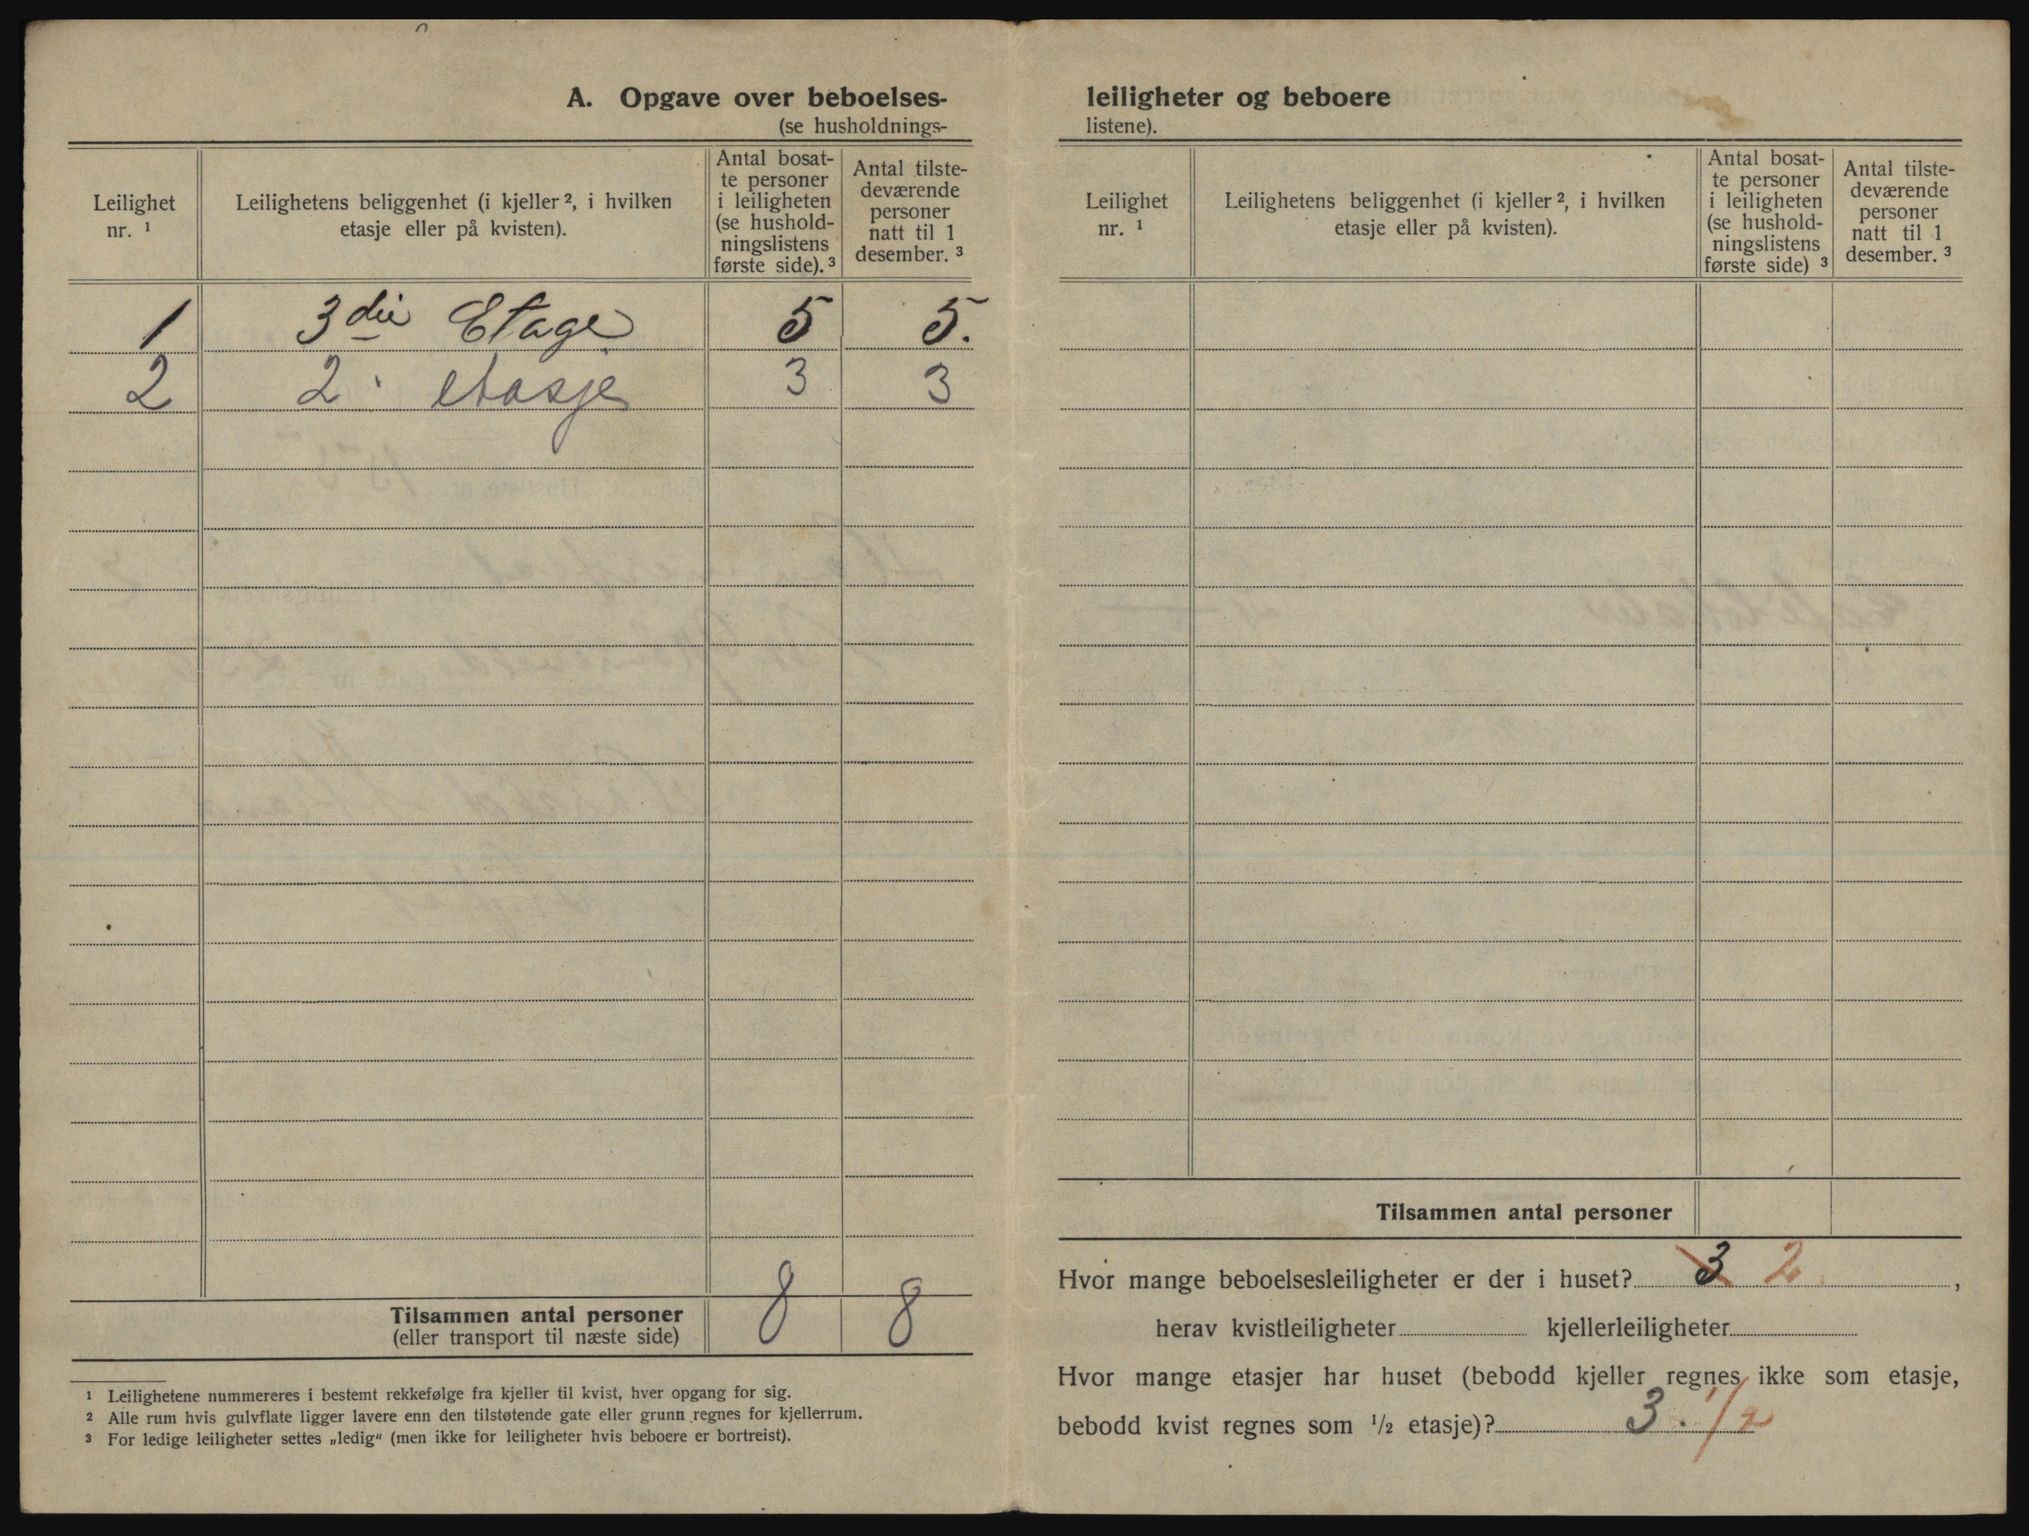 A. Opgave over beboelses-
(se husholdnings-
Leilighet nr. ¹
Leilighetens beliggenhet (i kjeller ², i hvilken etasje eller på kvisten).
Antal bosat-
te personer
i leiligheten
(se hushold-
ningslistens
første side). ³
Antal tilste-
deværende
personer
natt til 1
desember. ³
1 3die Etage 5 5.
2 2. etasje 3 3
Tilsammen antal personer 8 8
(eller transport til næste side)
¹ Leilighetene nummereres i bestemt rekkefølge fra kjeller til kvist, hver opgang for sig.
² Alle rum hvis gulvflate ligger lavere enn den tilstøtende gate eller grunn regnes for kjellerrum.
³ For ledige leiligheter settes „ledig“ (men ikke for leiligheter hvis beboere er bortreist).
leiligheter og beboere
listene).
Leilighet nr. ¹
Leilighetens beliggenhet (i kjeller ², i hvilken etasje eller på kvisten).
Antal bosat-
te personer
i leiligheten
(se hushold-
ningslistens
første side) ³
Antal tilste-
deværende
personer
natt til 1
desember. ³
Tilsammen antal personer
Hvor mange beboelsesleiligheter er der i huset? 3 2 ,
herav kvistleiligheter kjellerleiligheter
Hvor mange etasjer har huset (bebodd kjeller regnes ikke som etasje,
bebodd kvist regnes som ½ etasje)? 3. ½